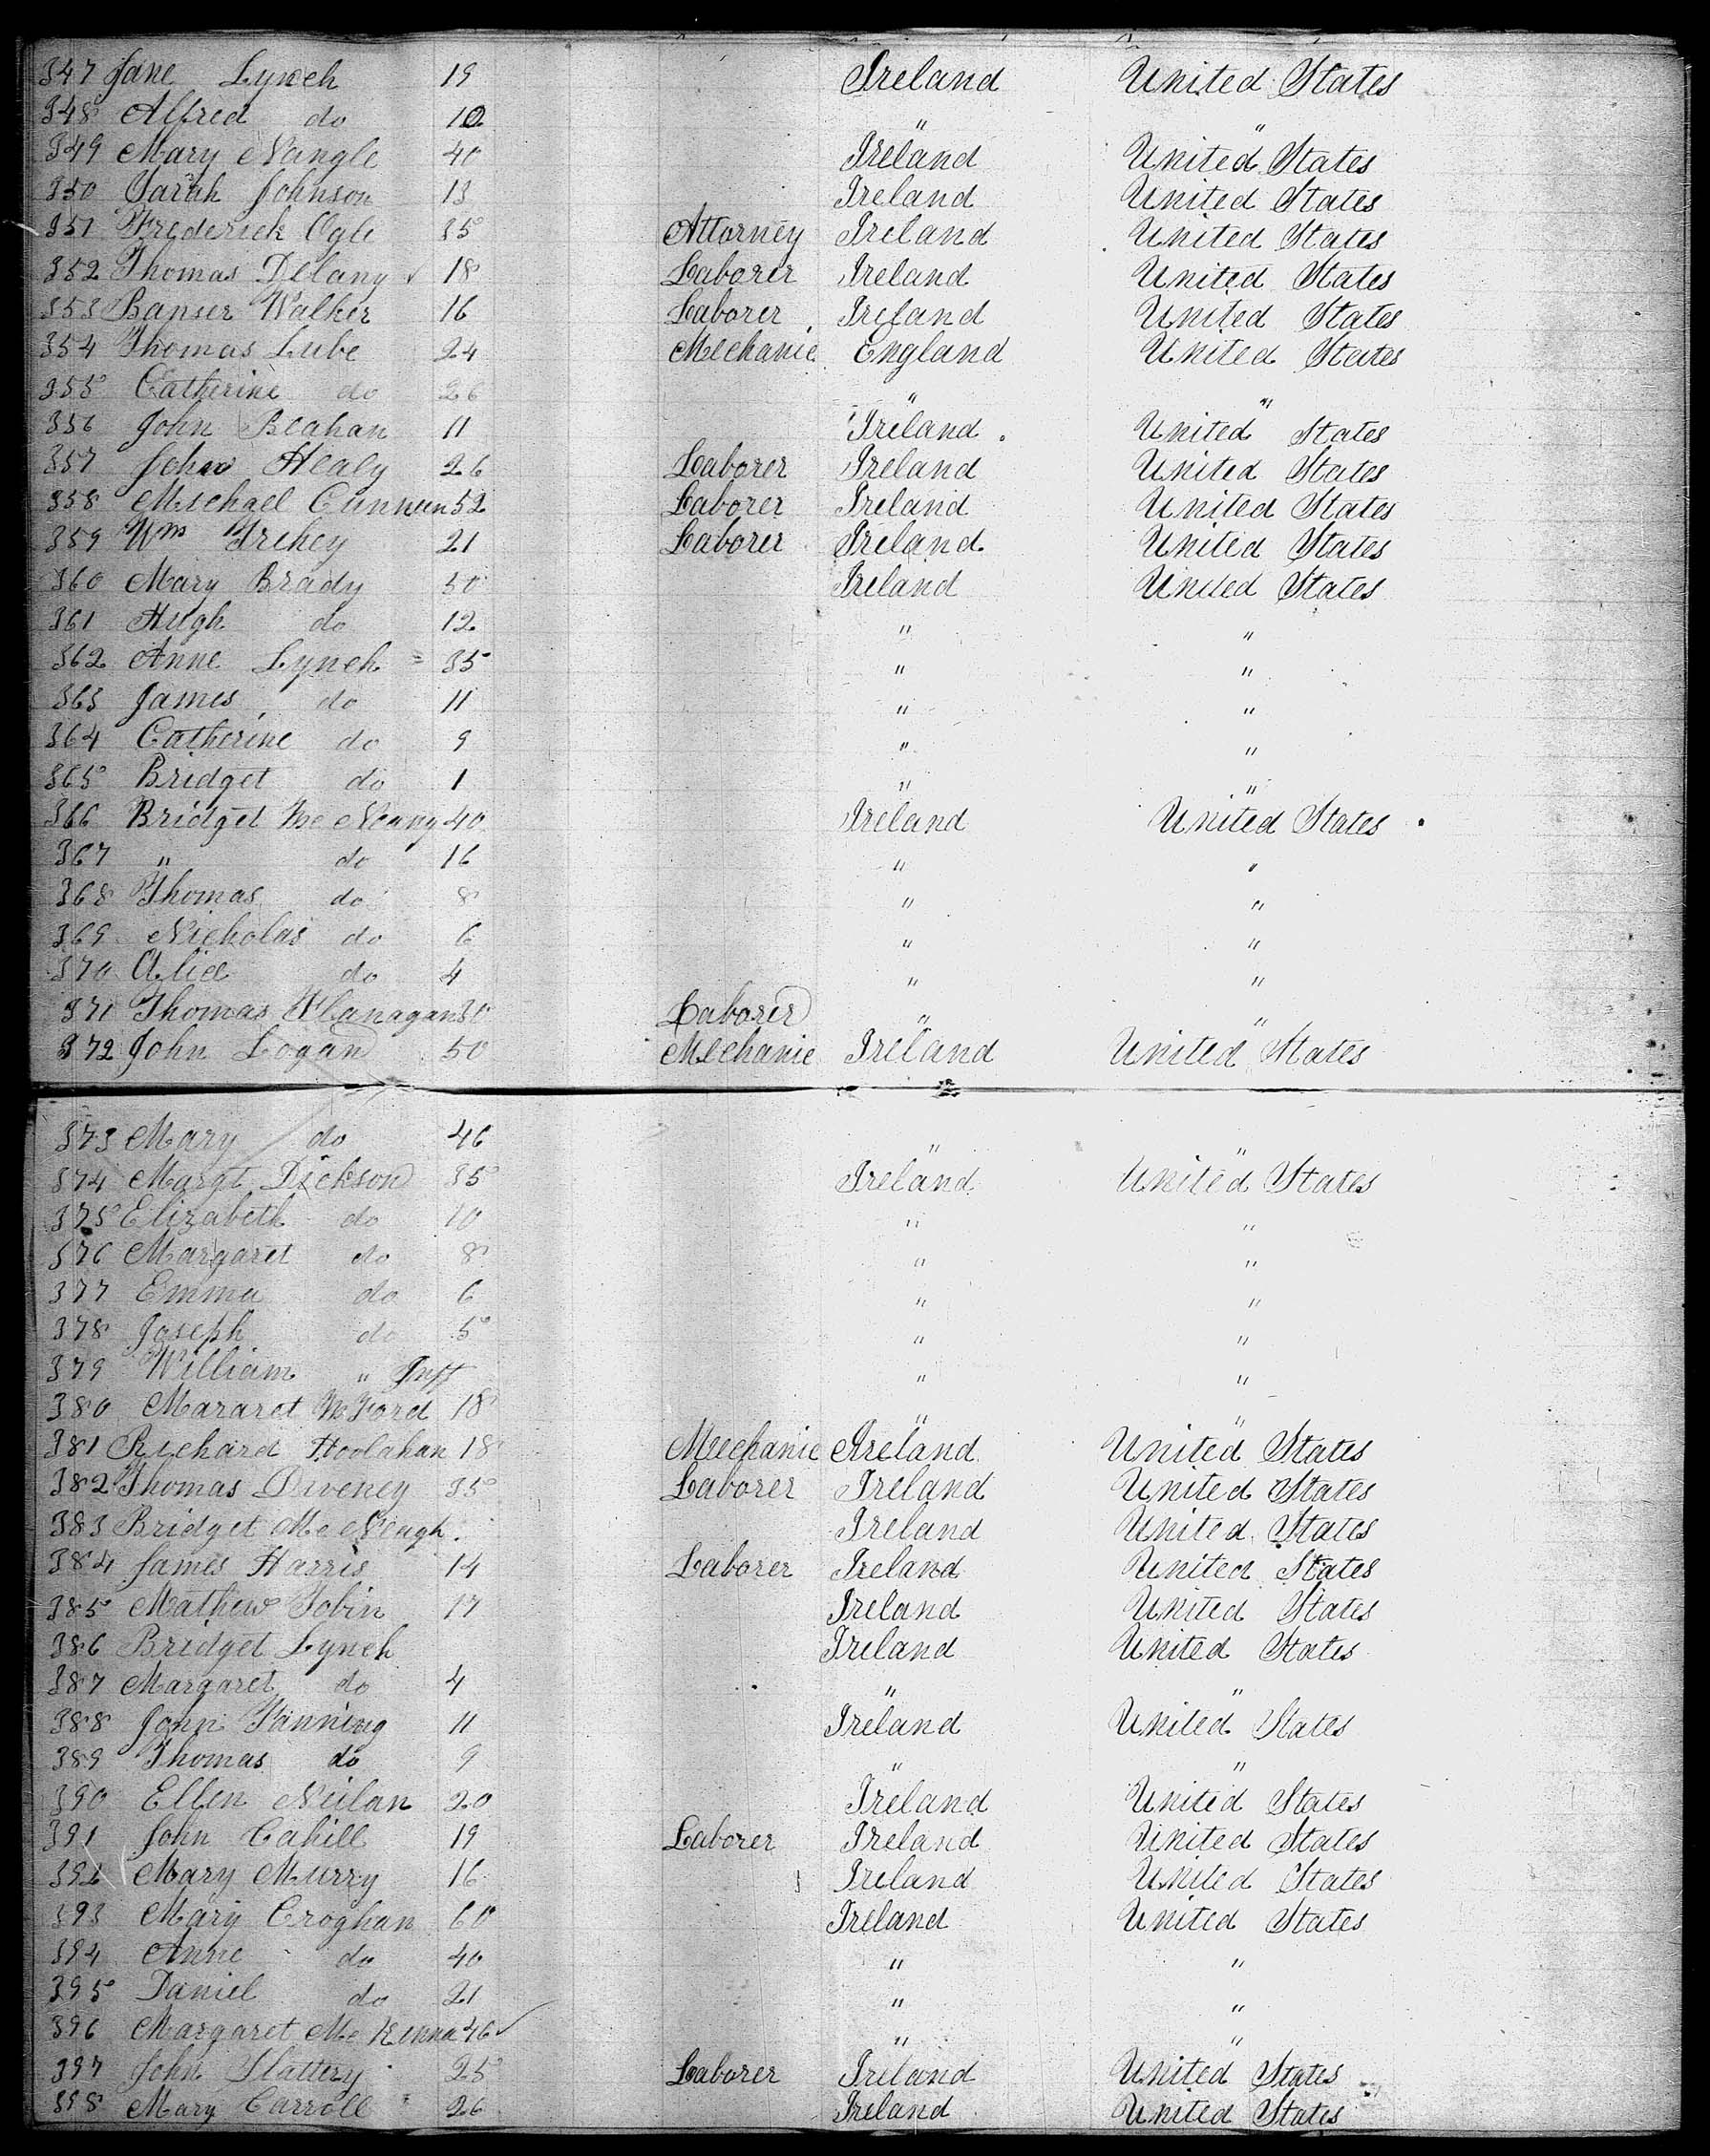 347 Jane Lynch 19 Ireland United States
348 Alfred do 10 " "
349 Mary Nangle 40 Ireland United States
350 Sarah Johnson 13 Ireland United States
351 Frederick Ogle 35 Attorney Ireland United States
352 Thomas Delany 18 Laborer Ireland United States
353 Walker 16 Laborer Ireland United States
354 Thomas Lube 24 Mechanic England United States
355 Catherine do 26 " "
356 John Beahan 11 Ireland United States
357 John Healy 26 Laborer Ireland United States
358 Michael Cunneen 52 Laborer Ireland United States
359 Wm Trehey 21 Laborer Ireland United States
360 Mary Brady 50 Ireland United States
361 Hugh do 12 " "
362 Anne Lynch 35 " "
363 James do 11 " "
364 Catherine do 9 " "
365 Bridget do 1 " "
366 Bridget Mc 40 Ireland United States
367 " do 16 " "
368 Thomas do 8 " "
369 Nicholas do 6 " "
370 Alice do 4 " "
371 Thomas Flanagan 30 Laborer " "
372 John Logan 50 Mechanic Ireland United States
373 Mary do 46 " "
374 Margt Dickson 35 Ireland United States
375 Elizabeth do 10 " "
376 Margaret do 8 " "
377 Emma do 6 " "
378 Joseph do 5 " "
379 William " Inft " "
380 Mararet McFord 18 " "
381 Richard Hoolahan 18 Mechanic Ireland United States
382 Thomas Diveney 35 Laborer Ireland United States
383 Bridget Mc Veagh Ireland United States
384 James Harris 14 Laborer Ireland United States
385 Mathew Tobin 17 Ireland United States
386 Bridget Lynch Ireland United States
387 Margaret do 4 " "
388 John Fanning 11 Ireland United States
389 Thomas do 9 " "
390 Ellen Neilan 20 Ireland United States
391 John Cahill 19 Laborer Ireland United States
392 Mary Murry 16 Ireland United States
393 Mary Croghan 60 Ireland United States
394 Anne do 40 " "
395 Daniel do 21 " "
396 Margaret Mc Kenna 46 " "
397 John Slattery 25 Laborer Ireland United States
398 Mary Carroll 26 Ireland United States